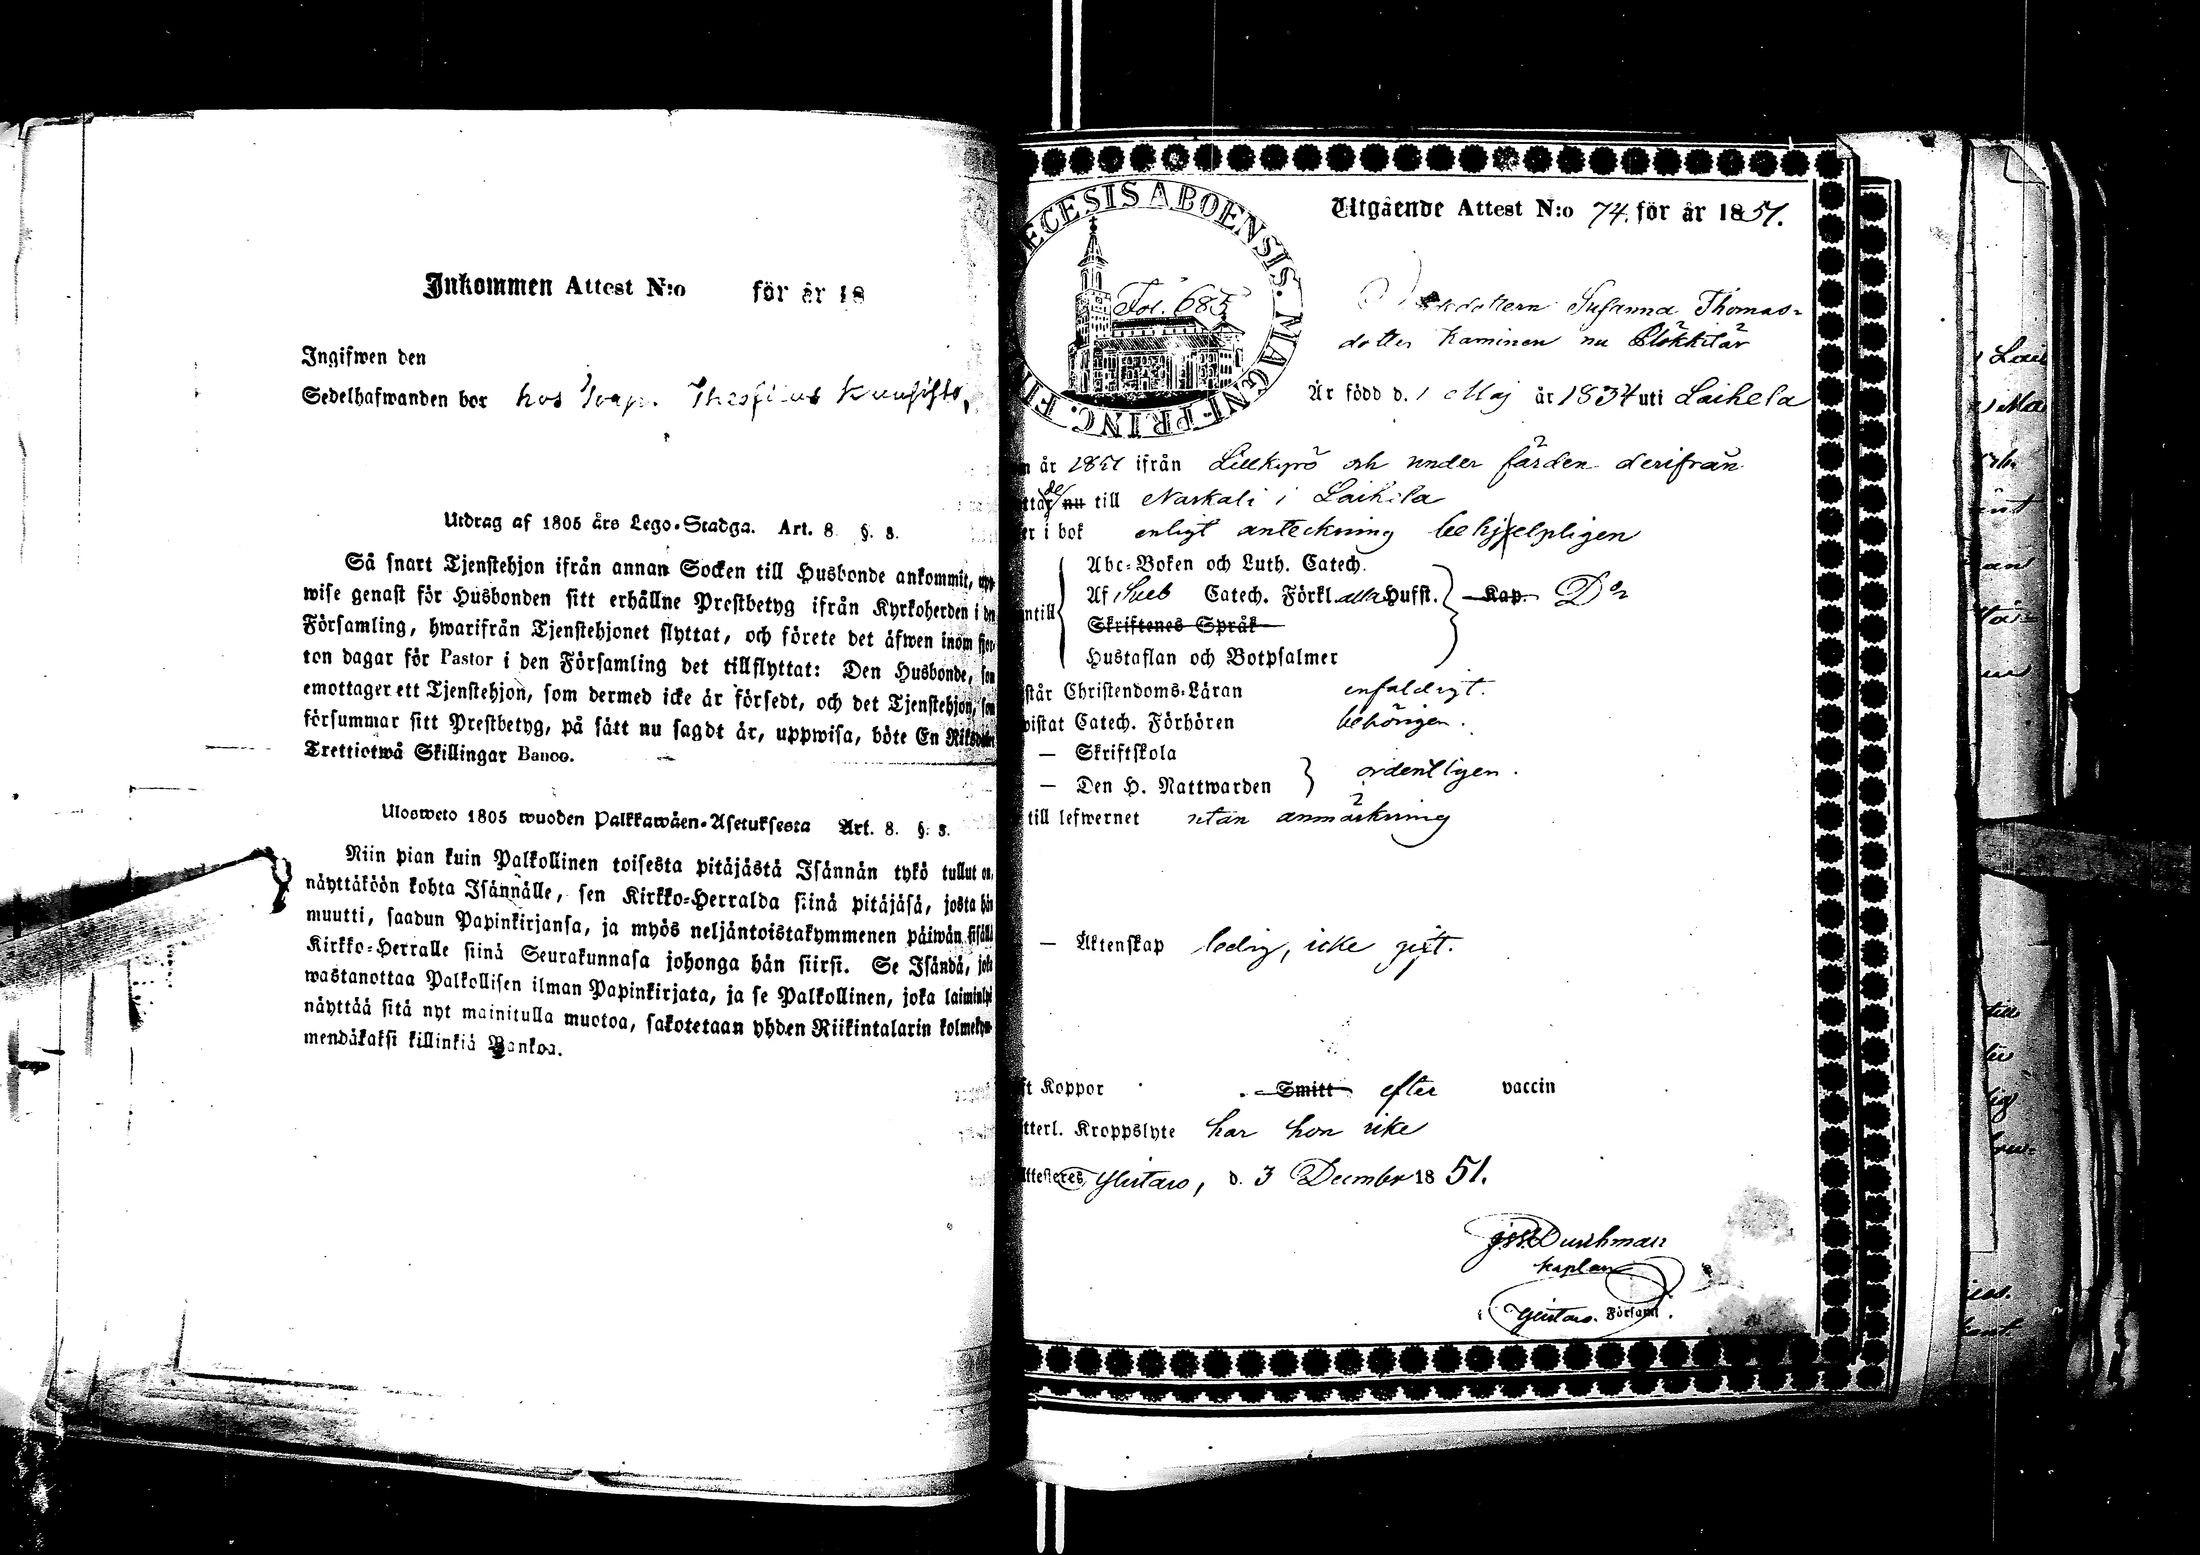 Inkommen Attest N:o för år 18
Ingifwen den
Sedelhafwanden bor hos
Utdrag af 1805 års Lego-Stadga. Art. 8 §. 8.
Så snart Tjenstehjon ifrån annan Socken till Husbonde ankommit,
wise genast för Husbonden sitt erhållne Prestbetyg ifrån Kyrkoherden i den
Församling, hwarifrån Tjenstehjonet flyttat, och förete det äfwen inom
ton dagar för Pastor i den Församling det tillflyttat: Den Husbonde, som
emottager ett Tjenstehjon, som dermed icke är försedt, och det Tjenstehjon, som
försummar sitt Prestbetyg, på sätt nu sagdt är, uppwisa, böte En Riksdaler
Trettiotwå Skillingar Banco.
Ulosweto 1805 wuoden Palkkawäen-Asetuksesta Art. 8. §. 8.
Niin pian kuin Palkollinen toisesta pitäjästä Isännän tykö tullut on,
näyttäköön kohta Isännälle, sen Kirkko-Herralda siinä pitäjäsä, josta hän
muutti, saadun Papinkirjansa, ja myös neljäntoistakymmenen päiwän sisällä
Kirkko-Herralle siinä Seurakunnasa johonga hän siirsi. Se Isändä, joka
wastanottaa Palkollisen ilman Papinkirjata, ja se Palkollinen, joka
näyttää sitä nyt mainitulla muotoa, sakotetaan yhden Riikintalarin
mendäkaksi killinkiä Bankoa.
ECESIS ABOENSIS. MAGNI. PRINC. FI
Fol. 685
Utgående Attest N:o 74. för år 1851.
Susanna Thomas-
dotter Kaminen nu
Är född d. 1 Maj år 1834 uti Laihela
n år 1851 ifrån Lillkyrö och under färden derifrån
nu till Narkali i Laihela
er i bok enligt anteckning behjelpligen
Abc-Boken och Luth. Catech.
Af Sveb Catech. Förkl. alla Husst. Kap. D:o
ntill
Skriftenes Språk
Hustaflan och Botpsalmer
står Christendoms-Läran enfaldigt.
vistat Catech. Förhören behörigen.
— Skriftskola
— Den H. Nattwarden ordentligen.
till lefwernet utan anmärkning
— Äktenskap ledig, icke gift.
ft Koppor Smitt efter vaccin
tterl. Kroppslyte har hon icke
Attesteres Ylistaro, d. 3 December 1851.
kaplan
i Ylistaro. Församl.